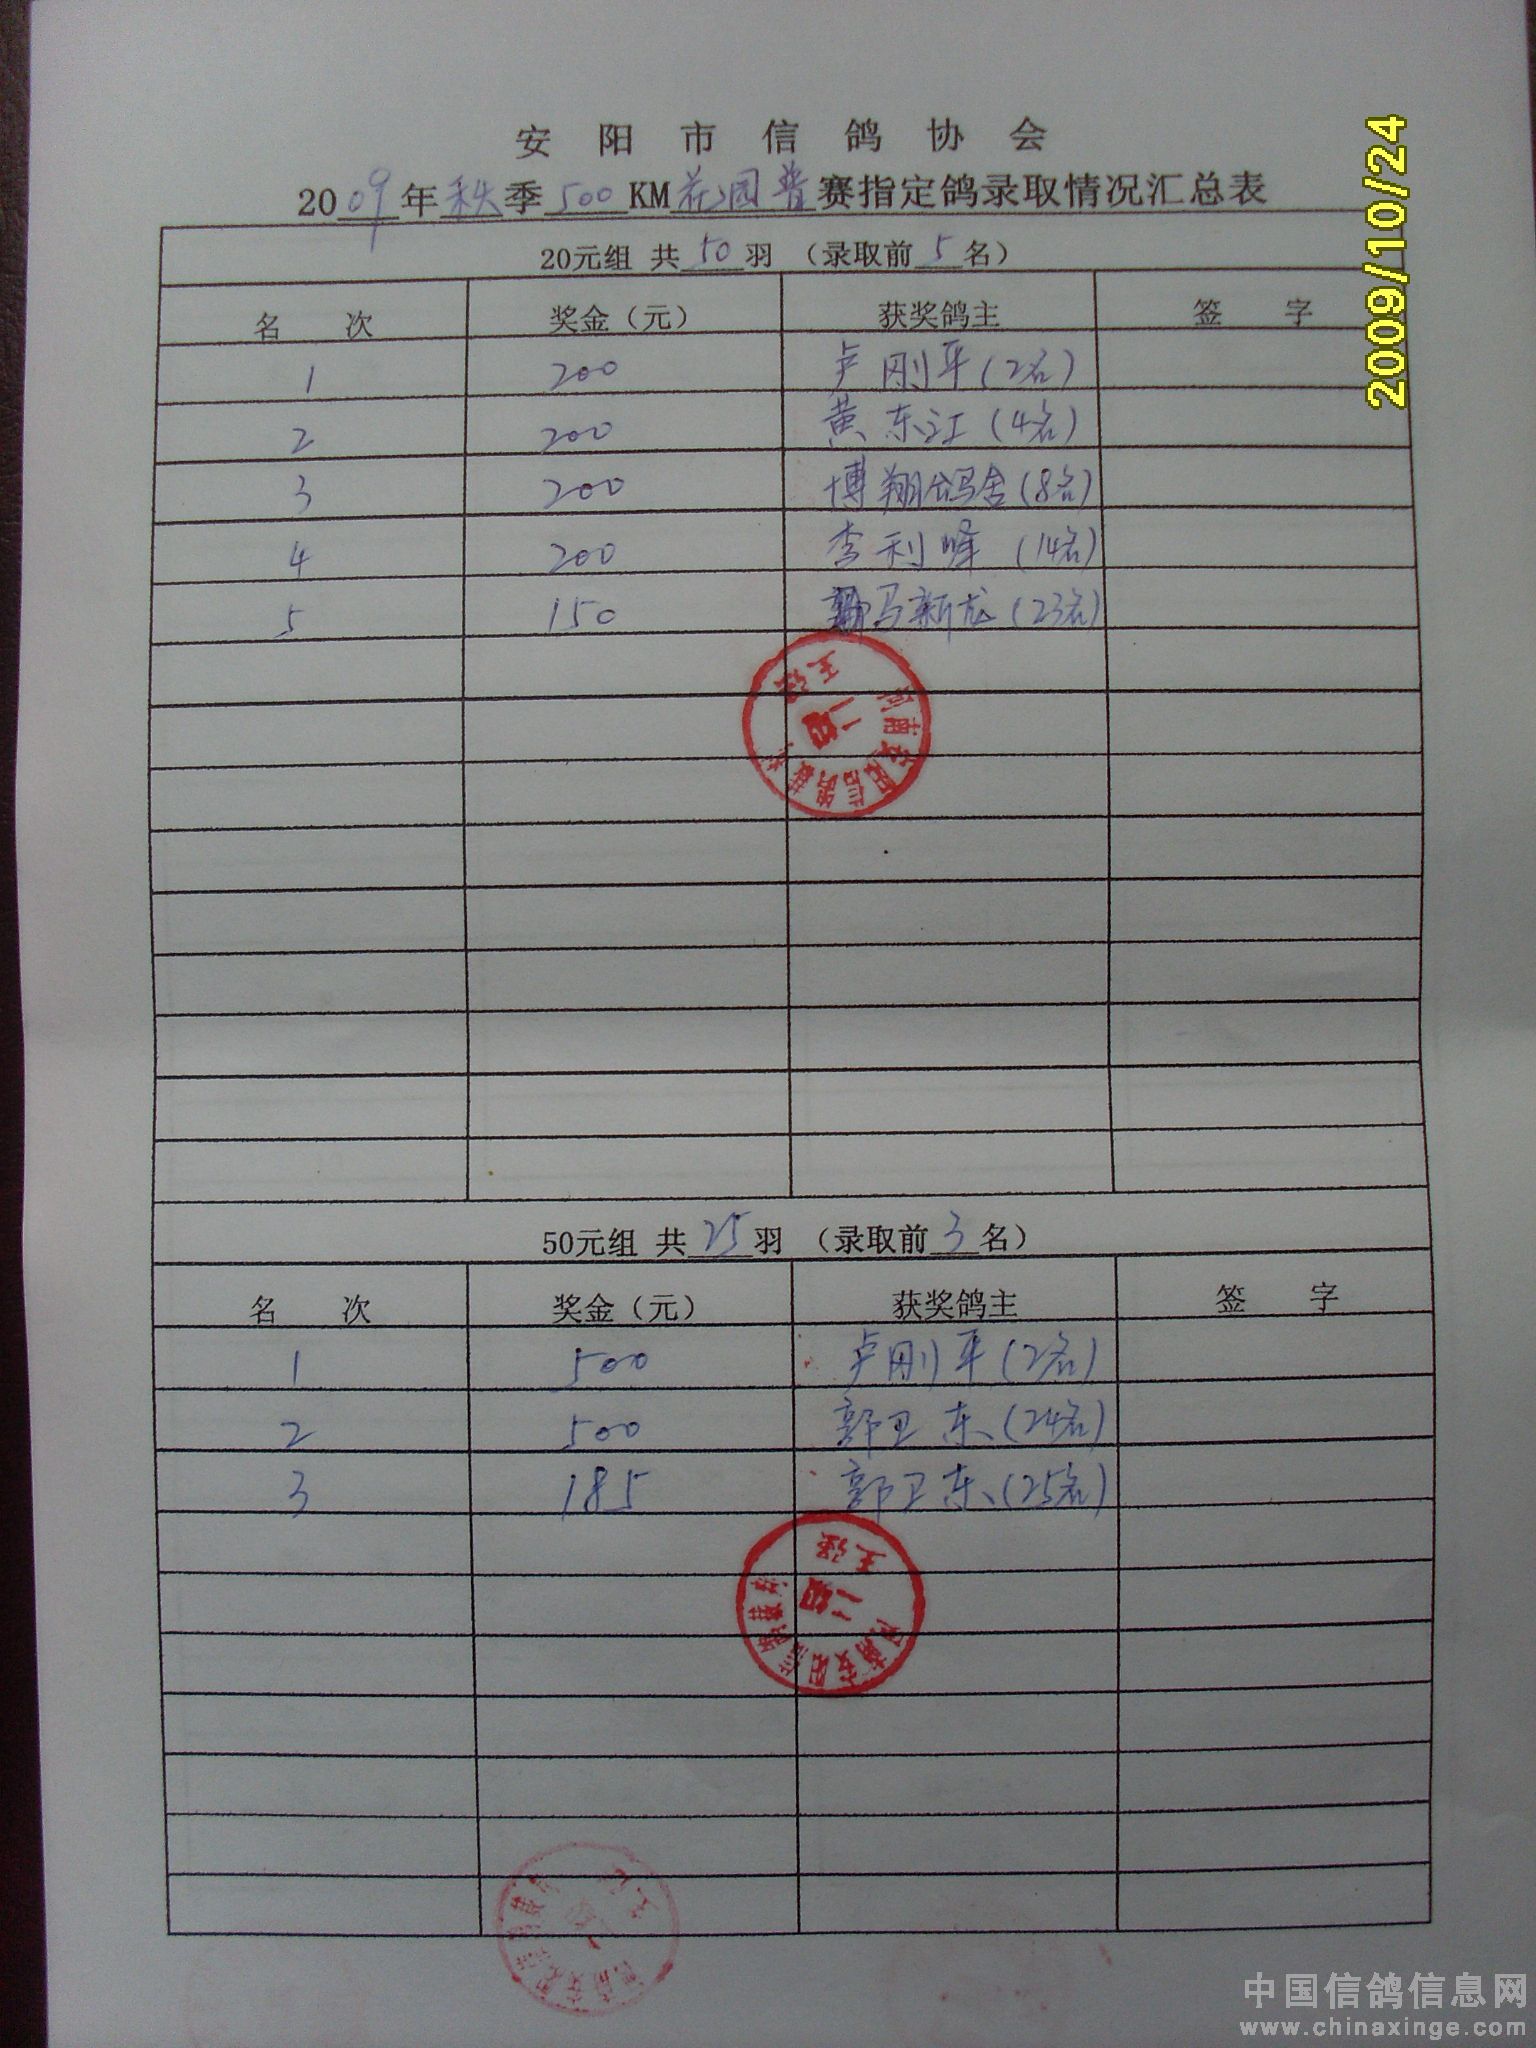 安阳市信鸽协会
2009年秋季500KM花园普赛指定鸽录取情况汇总表
20元组 共50羽 (录取前5名)
名 次 奖金(元) 获奖鸽主 签 字
1 200 卢刚平(2名)
2 200 黄东江(4名)
3 200 博翔鸽舍(8名)
4 200 李利峰(14名)
5 150 马新龙(23名)
河南安阳信鸽裁判
二级
王强
50元组 共25羽 (录取前3名)
名 次 奖金(元) 获奖鸽主 签 字
1 500 卢刚平(2名)
2 500 郭卫东(24名)
3 185 郭卫东(25名)
河南安阳信鸽裁判
二级
王强
2009/10/24
中国信鸽信息网
www.chinaxinge.com